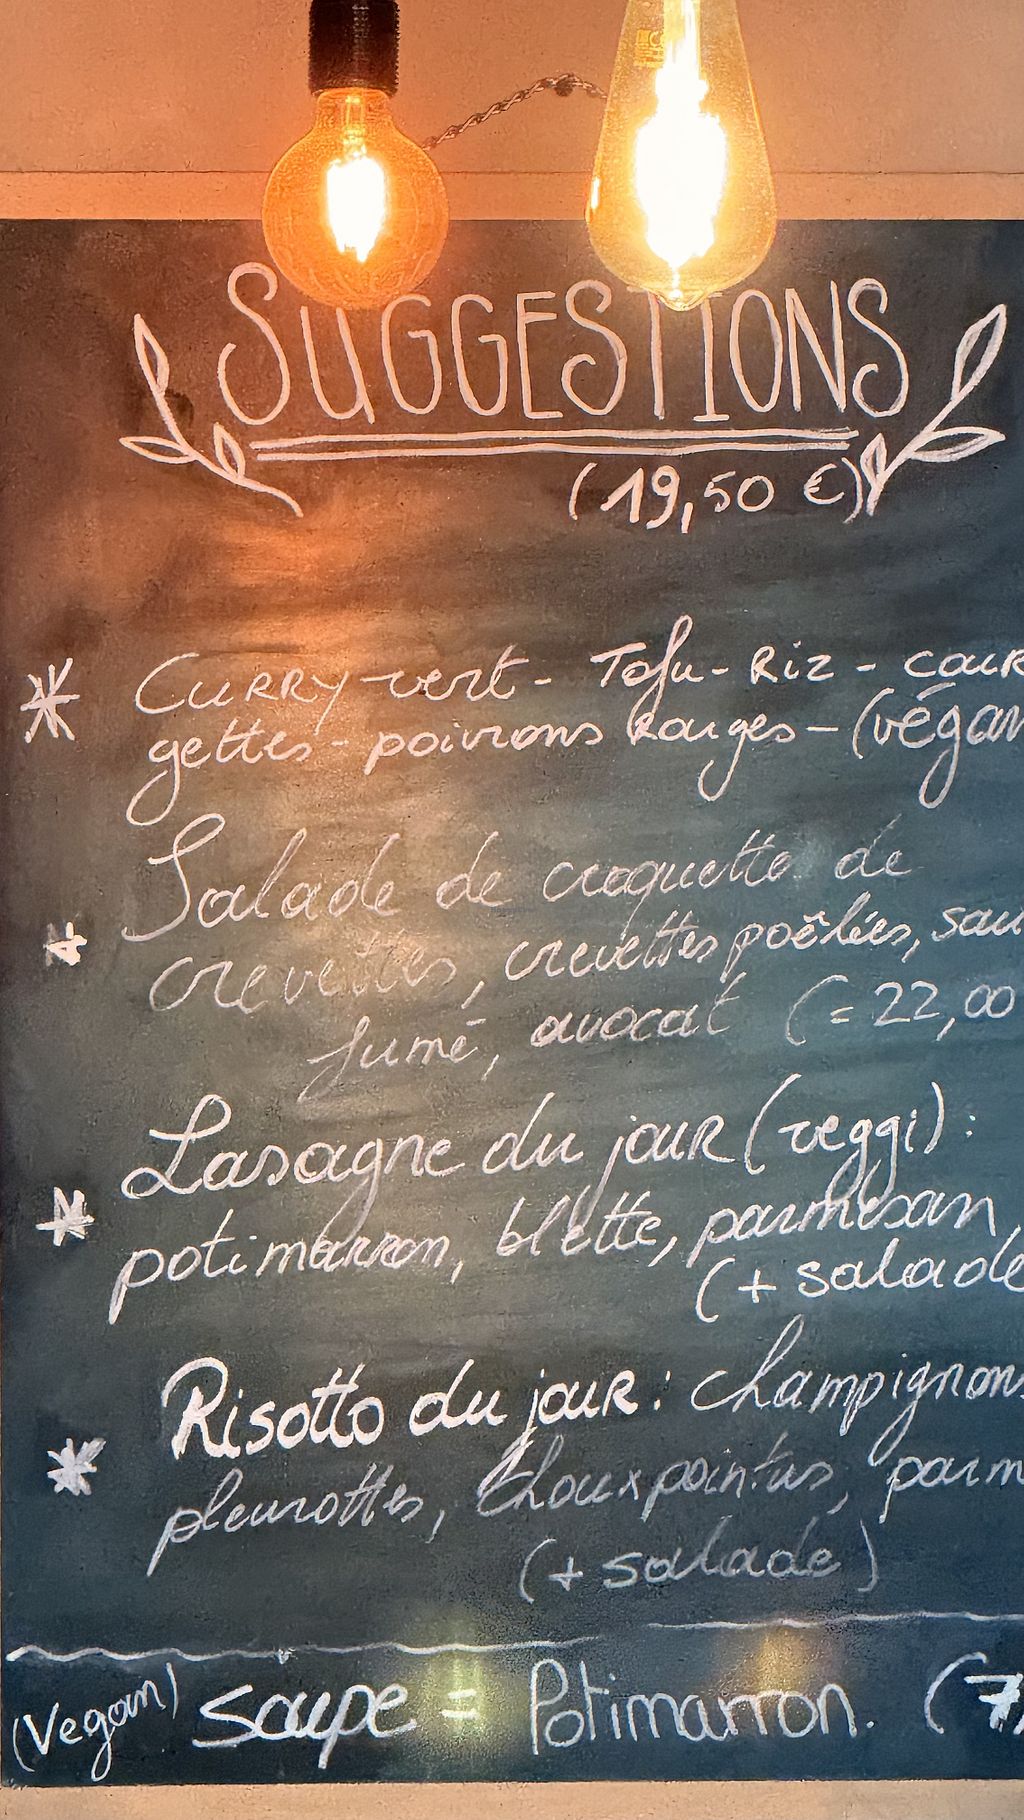 SUGGESTIONS
(19,50 €)
* CURRY vert - Tofu - Riz - cour
gettes - poivrons Rouges - (végan
* Salade de croquette de
crevettes, crevettes poêlées, sau
fumé, avocat (= 22,00
* Lasagne du jour (veggi) :
potimarron, blette, parmesan,
(+ salade
* Risotto du jour : champignons
pleurottes, choux pointus, parm
(+ salade)
(Vegan) soupe = Potimarron. (7,